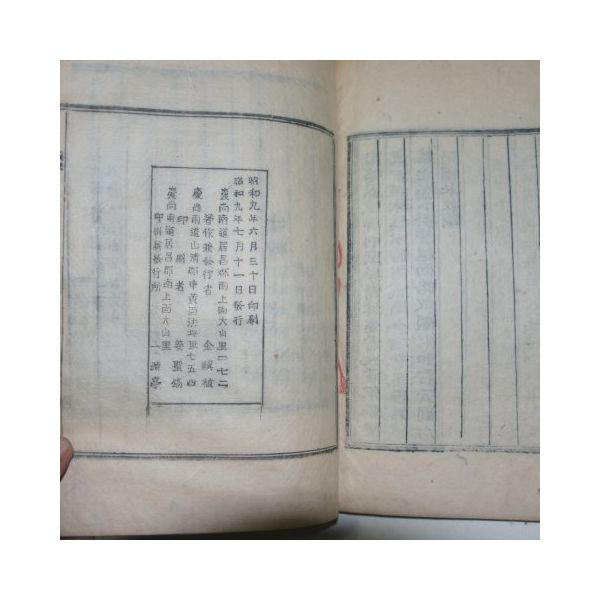 昭和九年六月三十日印刷
昭和九年七月十一日發行
慶尚南道居昌郡南上面大山里一七二
著作兼發行者 金 植
慶尚南道山淸郡車黃面法坪里七五四
印刷者 姜聖
慶尚南道居昌郡南上面大山里
印刷兼發行所 一 亭